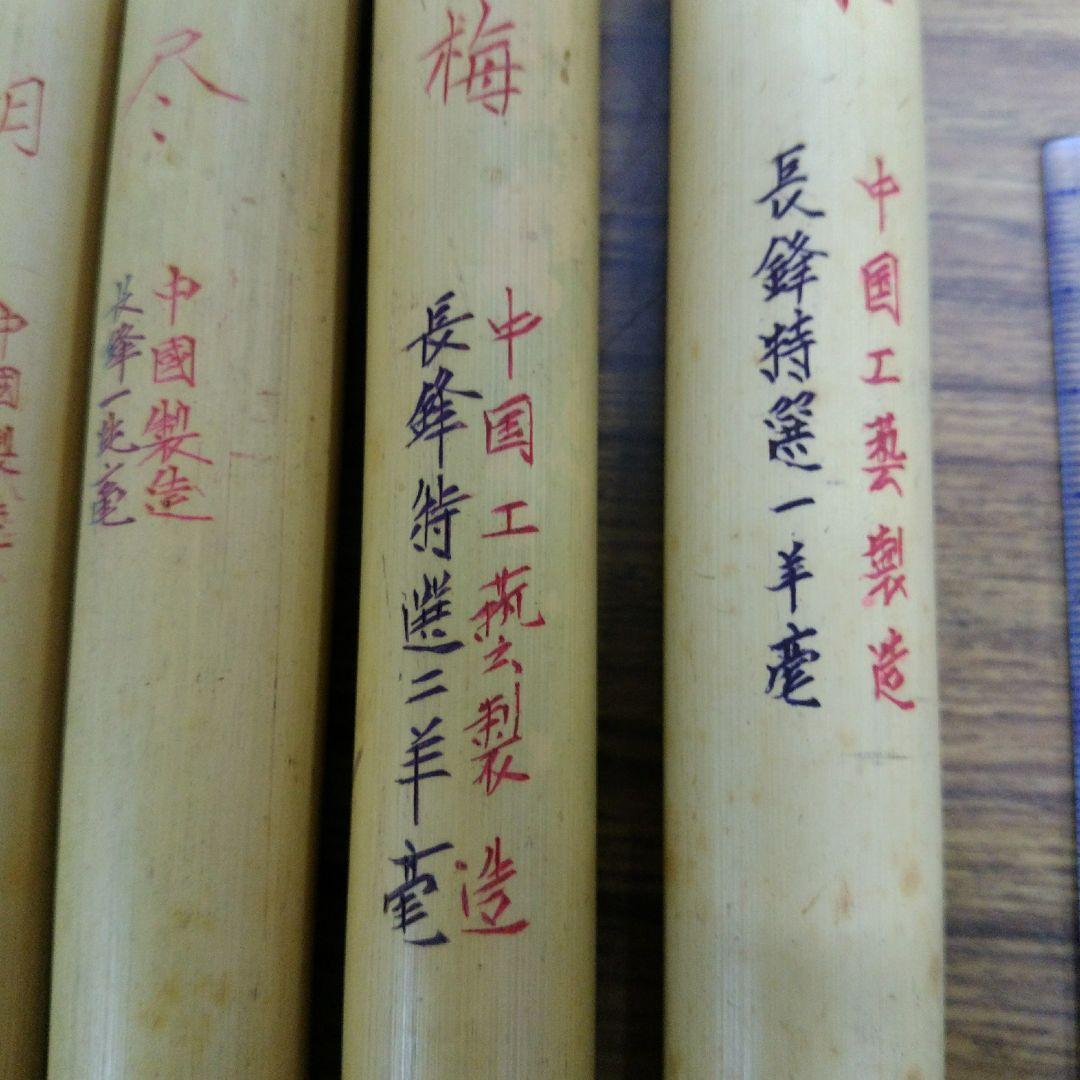 中国工藝製造
長鋒特選一羊毫
梅
中国工藝製造
長鋒特選二羊毫
尽
中國製造
長鋒一羊毫
明
中國製造